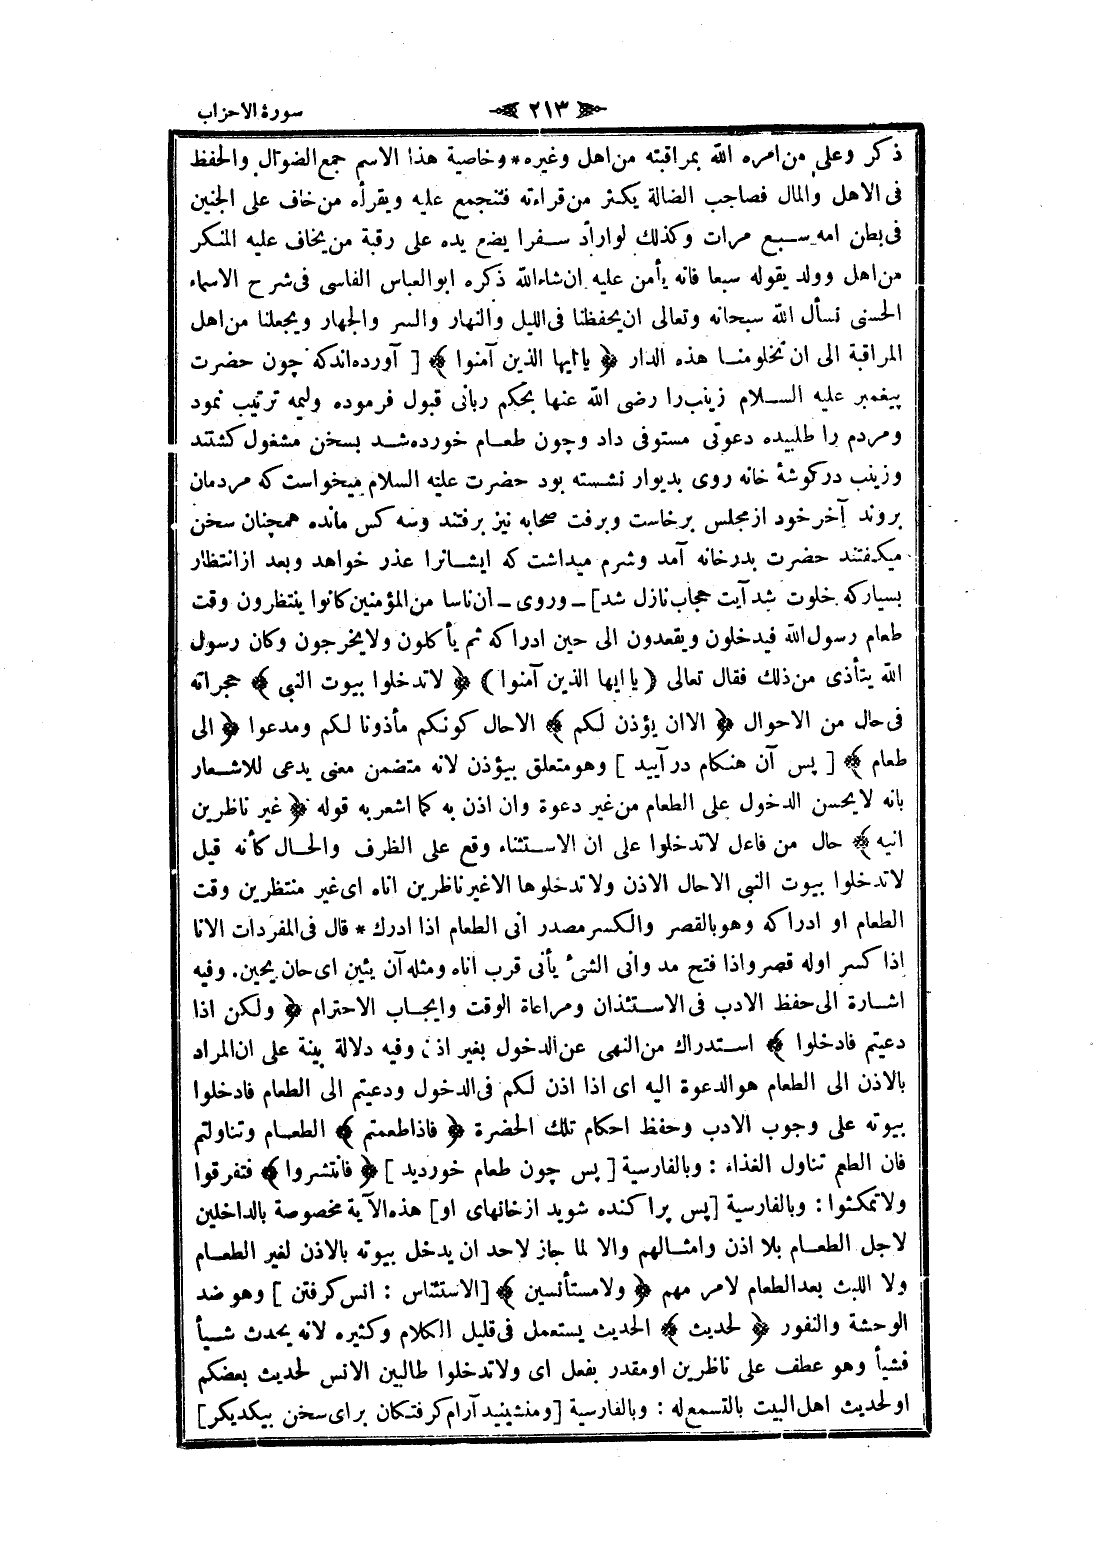 سورة الاحزاب
٢١٣
ذكر وعلى من امره الله بمراقبته من اهل وغيره * وخاصية هذا الاسم جمع الضوال والحفظ
فى الاهل والمال فصاحب الضالة يكثر من قراءته فتنجمع عليه ويقرأه من خاف على الجنين
فى بطن امه سبع مرات وكذلك لو اراد سفرا يضع يده على رقبة من يخاف عليه المنكر
من اهل وولد يقوله سبعا فانه يأمن عليه ان شاء الله ذكره ابو العباس الفاسى فى شرح الاسماء
الحسنى نسأل الله سبحانه وتعالى ان يحفظنا فى الليل والنهار والسر والجهار ويجعلنا من اهل
المراقبة الى ان تخلو منا هذه الدار ﴿ يا ايها الذين آمنوا ﴾ [ آورده اند كه چون حضرت
پيغمبر عليه السلام زينب را رضى الله عنها بحكم ربانى قبول فرموده وليمه ترتيب نمود
ومردم را طلبيده دعوتى مستوفى داد وچون طعام خورده شد بسخن مشغول كشتند
وزينب در كوشۀ خانه روى بديوار نشسته بود حضرت عليه السلام ميخواست كه مردمان
بروند آخر خود از مجلس برخاست وبرفت صحابه نيز برفتند وسه كس مانده همچنان سخن
ميكفتند حضرت بدر خانه آمد وشرم ميداشت كه ايشانرا عذر خواهد وبعد از انتظار
بسيار كه خلوت شد آيت حجاب نازل شد] ـ وروى ـ ان ناسا من المؤمنين كانوا ينتظرون وقت
طعام رسول الله فيدخلون ويقعدون الى حين ادراكه ثم يأكلون ولا يخرجون وكان رسول
الله يتأذى من ذلك فقال تعالى ( يا ايها الذين آمنوا ) ﴿ لا تدخلوا بيوت النبى ﴾ حجراته
فى حال من الاحوال ﴿ الا ان يؤذن لكم ﴾ الا حال كونكم مأذونا لكم ومدعوا ﴿ الى
طعام ﴾ [ پس آن هنكام در آييد ] وهو متعلق بيؤذن لانه متضمن معنى يدعى للاشعار
بانه لا يحسن الدخول على الطعام من غير دعوة وان اذن به كما اشعر به قوله ﴿ غير ناظرين
انيه ﴾ حال من فاعل لا تدخلوا على ان الاستثناء وقع على الظرف والحال كأنه قيل
لا تدخلوا بيوت النبى الا حال الاذن ولا تدخلوها الا غير ناظرين اناه اى غير منتظرين وقت
الطعام او ادراكه وهو بالقصر والكسر مصدر انى الطعام اذا ادرك * قال فى المفردات الانا
اذا كسر اوله قصر واذا فتح مد وانى الشئ يأنى قرب اناه ومثله آن يئين اى حان يحين . وفيه
اشارة الى حفظ الادب فى الاستئذان ومراعاة الوقت وايجاب الاحترام ﴿ ولكن اذا
دعيتم فادخلوا ﴾ استدراك من النهى عن الدخول بغير اذن وفيه دلالة بينة على ان المراد
بالاذن الى الطعام هو الدعوة اليه اى اذا اذن لكم فى الدخول ودعيتم الى الطعام فادخلوا
بيوته على وجوب الادب وحفظ احكام تلك الحضرة ﴿ فاذا طعمتم ﴾ الطعام وتناولتم
فان الطعم تناول الغذاء : وبالفارسية [ پس چون طعام خورديد ] ﴿ فانتشروا ﴾ فتفرقوا
ولا تمكثوا : وبالفارسية [پس پراكنده شويد از خانهاى او] هذه الآية مخصوصة بالداخلين
لاجل الطعام بلا اذن وامثالهم والا لما جاز لاحد ان يدخل بيوته بالاذن لغير الطعام
ولا اللبث بعد الطعام لامر مهم ﴿ ولا مستأنسين ﴾ [الاستئناس : انس كرفتن ] وهو ضد
الوحشة والنفور ﴿ لحديث ﴾ الحديث يستعمل فى قليل الكلام وكثيره لانه يحدث شيأ
فشيأ وهو عطف على ناظرين او مقدر بفعل اى ولا تدخلوا طالبين الانس لحديث بعضكم
او لحديث اهل البيت بالتسمع له : وبالفارسية [ومنشينيد آرام كرفتكان براى سخن بيكديكر]